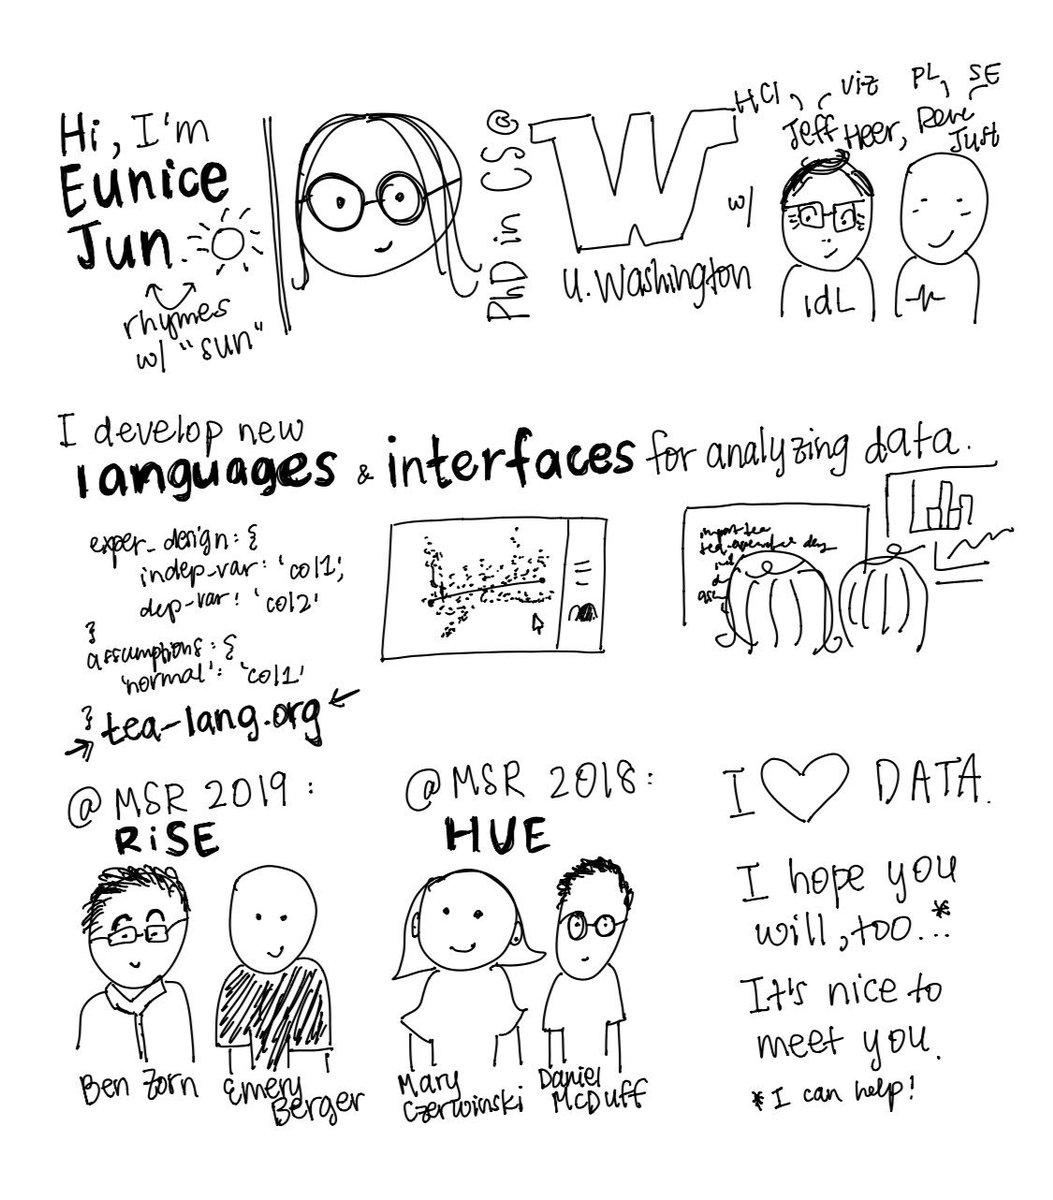 Hi, I'm
Eunice
Jun.
rhymes
w/ "sun"
PhD in CS @
W
U. Washington
w/
HCI
Viz
PL
SE
Jeff Heer, René
Just
idL
I develop new
languages & interfaces for analyzing data.
exper_design: {
indep-var: 'col1',
dep-var: 'col2'
}
assumptions: {
'normal': 'col1'
}
tea-lang.org
import tea
@ MSR 2019:
RiSE
Ben Zorn
Emery
Berger
@ MSR 2018:
HUE
Mary
Czerwinski
Daniel
McDuff
I ♡ DATA.
I hope you
will, too...*
It's nice to
meet you.
* I can help!